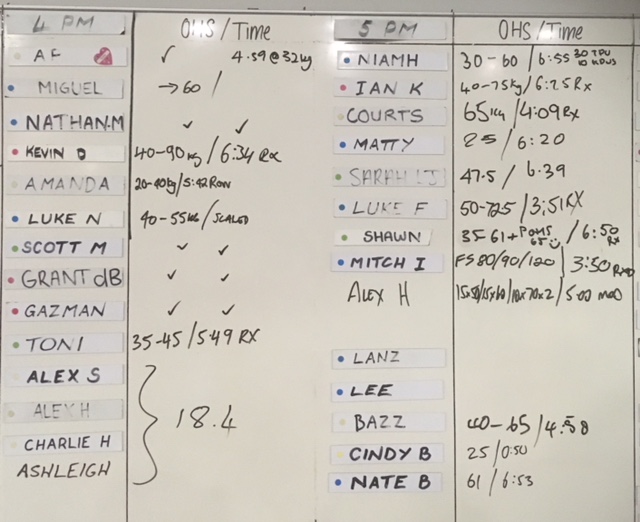 4 PM OHS/Time
AF ✓ 4.59@32kg
MIGUEL →60 /
NATHAN.M ✓ ✓
KEVIN D 40-90kg/6:34 RX
AMANDA 20-40kg/5:42 ROW
LUKE N 40-55kg/SCALED
SCOTT M ✓ ✓
GRANT dB ✓ ✓
GAZMAN ✓ ✓
TONI 35-45/5:49 RX
ALEX S
ALEX H
18.4
CHARLIE H
ASHLEIGH
5 PM OHS/Time
NIAMH 30-60/6:55
IAN K 40-75kg/6:25 Rx
COURTS 65kg/4:09 Rx
MATTY 25/6:20
SARAH 47.5/6.39
LUKE F 50-72.5/3:51 RX
SHAWN 35-61+ 65 /6:50 RX
MITCH I FS 80/90/120 | 3:50
ALEX H /5:00 MOD
LANZ
LEE
BAZZ 40-65/4:58
CINDY B 25/0:50
NATE B 61/6:53